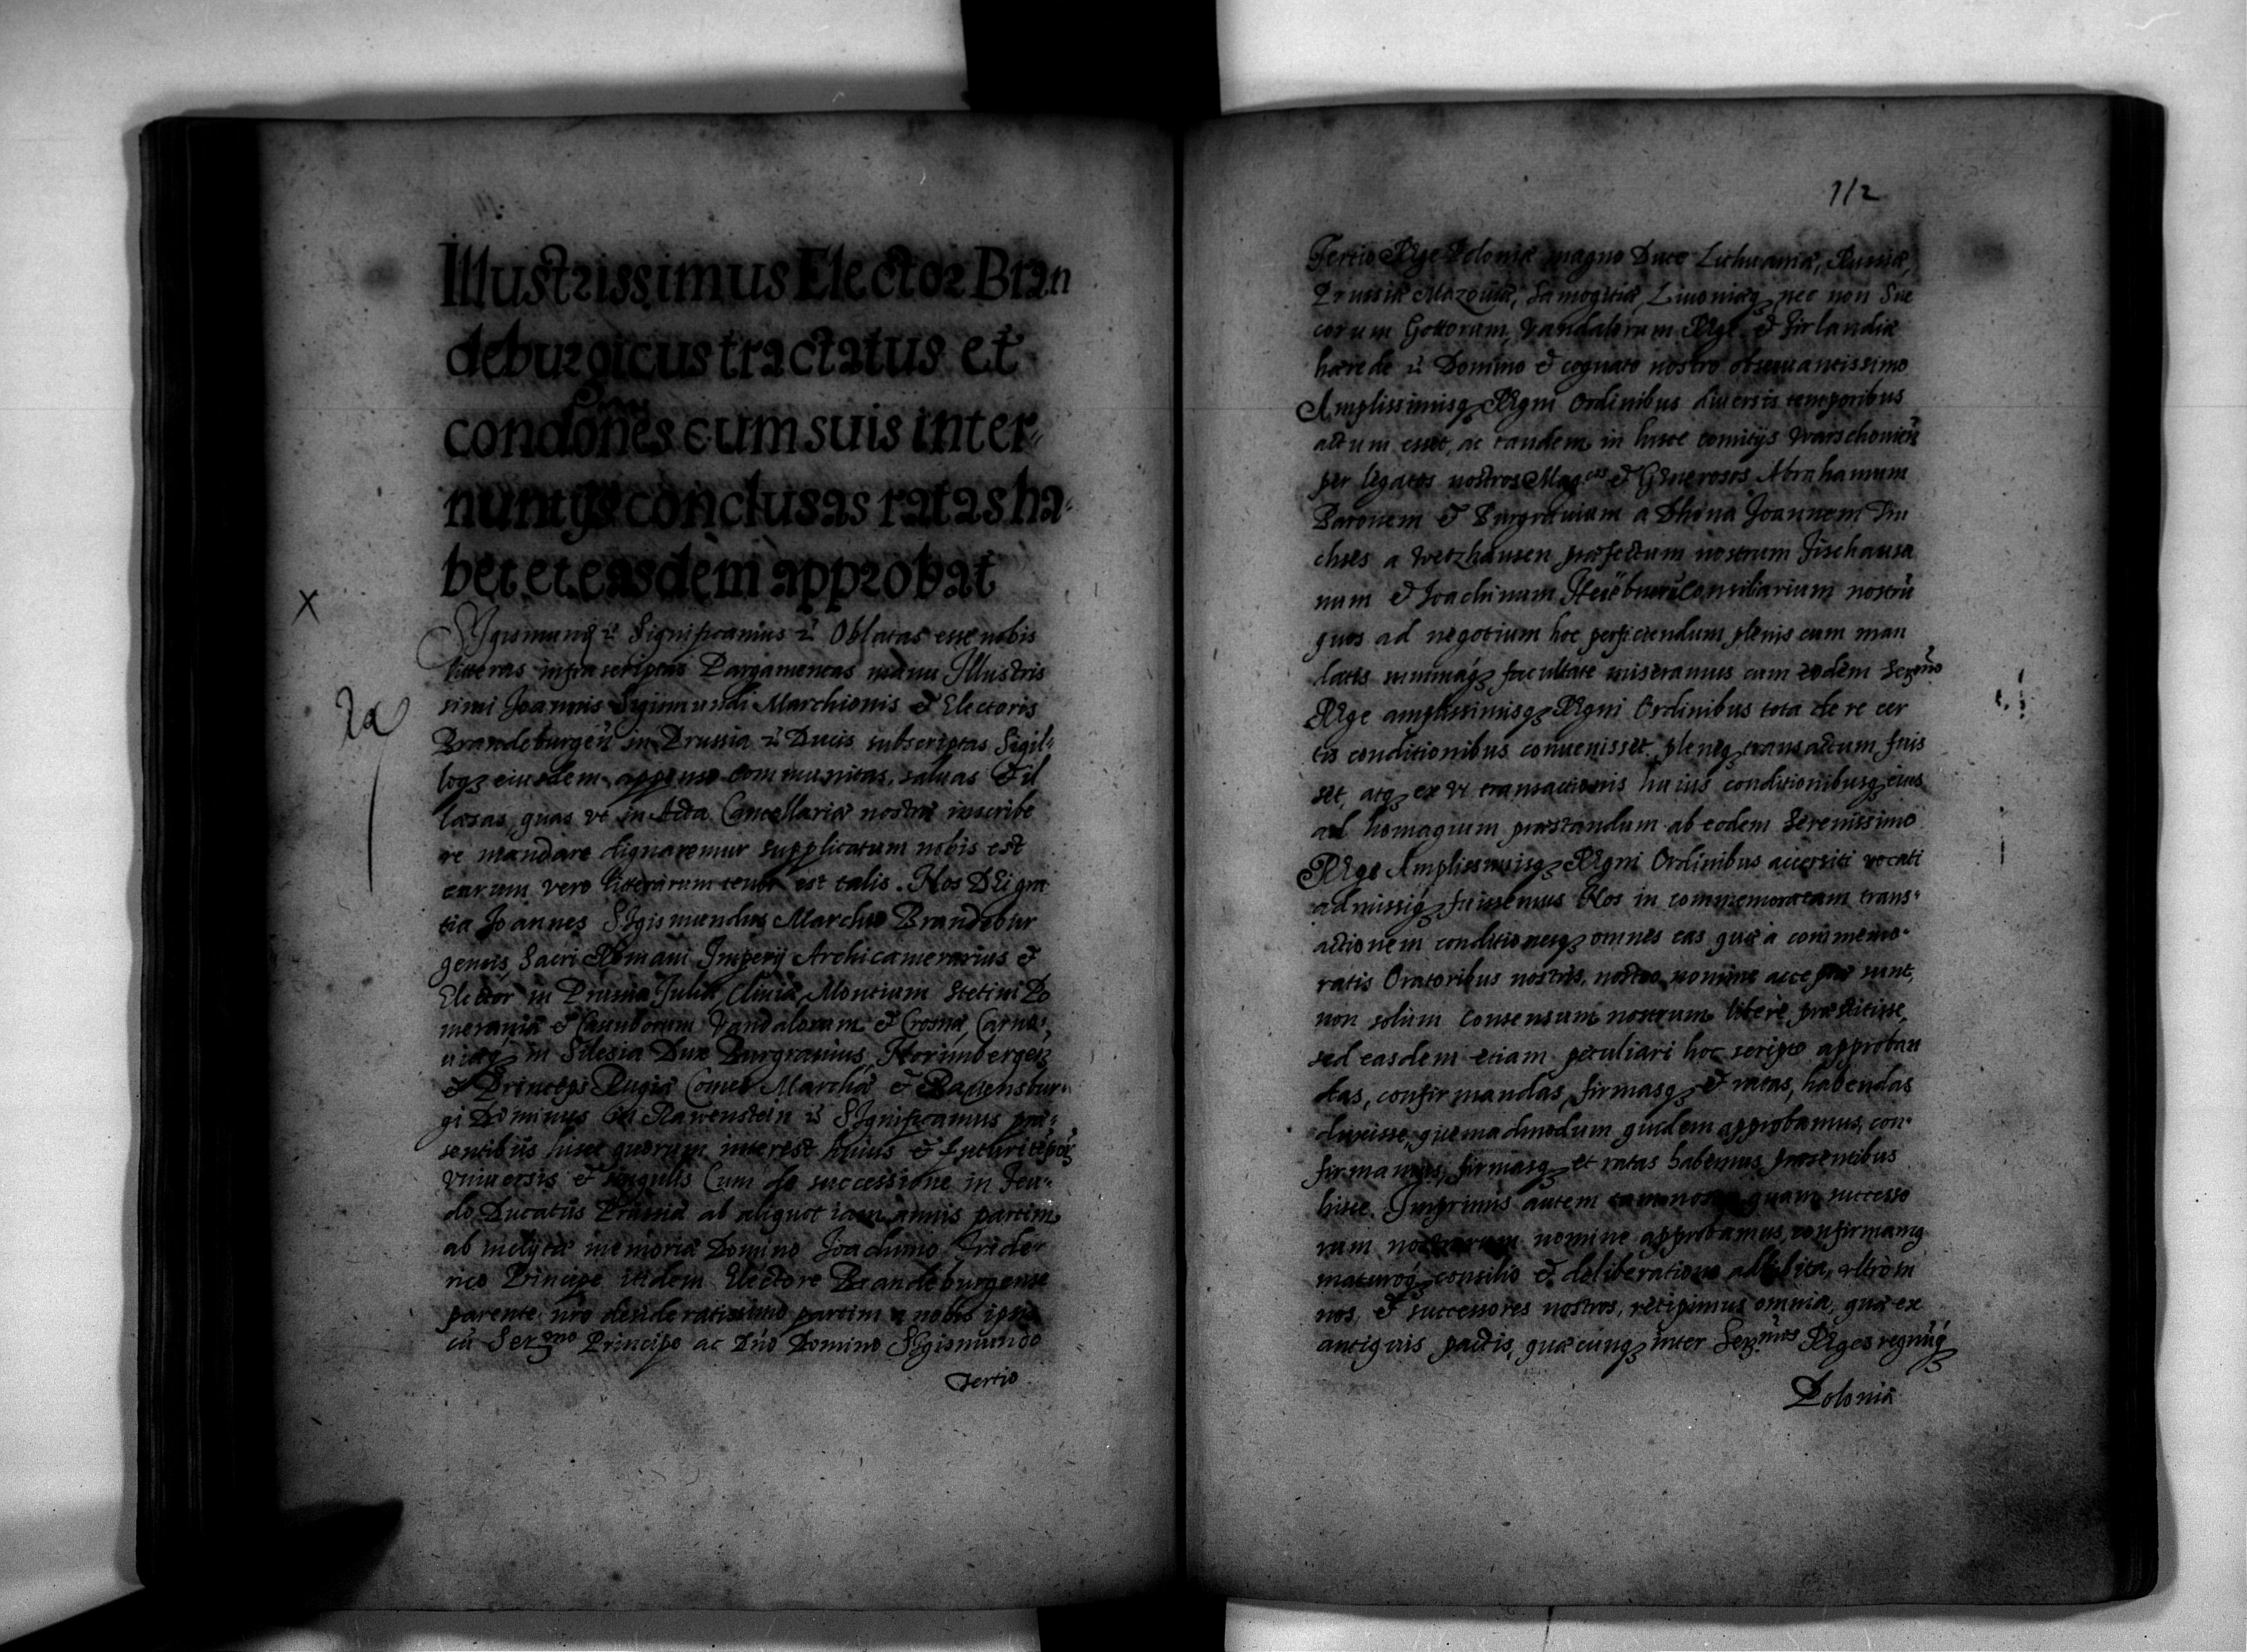 Illustrissimus Elector Bran
deburgicus tractatus et
condones cum suis inter-
nuntijs conclusas ratas ha-
bet et easdem approbat
Sigismund9 &c Significamus &c Oblatas esse nobis
litteras infrascriptas Pargameneas manu Illustris
simi Joannis Sigismundi Marchionis et Electoris
Brandeburgeñ in Prussia &c Ducis subscriptas Sigil-
loq3 eiusdem appenso communitas, saluas et il
læsas, quas vt in Acta Cancellariæ nostræ inscribe
re mandare dignaremur supplicatum nobis est
earum vero litterarum tenor est talis. Nos DEi gra
tia Joannes SIgismundus Marchio Brandebur
gensis, Sacri Romani Imperij Archicamerarius et
Elector in Prussia Juliæ, Cliuiæ Montium Stetini Po
meraniæ et Cassuborum Vandalorum et Crosnæ Carno-
uiæq3 in Silesia Dux Burgrauius, Norimbergeñ
et Princeps Rugiæ Comes Marchiæ et Rauensbur
gi Dominus in Rawenstein &c SIgnificamus præ-
sentibus hisce quorum interest huius et futuri tepor
Vniuersis et singulis Cum de successione in feu-
do Ducatus Prussiæ ab aliquot iam annis partim
ab inclytæ memoriæ Domino Joachimo Fride-
rico Principe itidem Electore Brandeburgense
parente nro desideratissimo partim a nobis ipsis
cu Sermo Principe ac Dño Domino SIgismundo
Tertio
112
Tertio REge Poloniæ magno Duce Lithuaniæ, Russiæ,
Prussiæ Mazouiæ, Samogitiæ Liuoniæq3 nec non Sue
corum Gottorum, Vandalorum REge et Finlandiæ
hærede &c Domino et cognato nostro obseruantissimo
Amplissimisq3 REgni Ordinibus diuersis temporibus
actum esset, ac tandem in hisce comitijs Warschouieñ
per legatos nostros Magcos et GEnerosos Abrahamum
Baronem et Burgrauium a Dhona Joannem Tru
chses a Wetzhausen præfectum nostrum Fischausa
num et Joachimum Consiliarium nostrũ
quos ad negotium hoc perficiendum plenis cum man
datis summaq3 facultate miseramus cum eodem Sermo
REge amplissimisq3 REgni Ordinibus tota de re cer
tis conditionibus conuenisset pleneq3 transactum fuis
set, atq3 ex vi transactionis huius conditionibusq3 eius
ad homagium præstandum ab eodem Serenissimo
REge Amplissimisq3 REgni Ordinibus accersiti vocati
admissiq3 fuissemus Nos in commemoratam trans-
actionem conditionesq3 omnes eas quæ a commemo-
ratis Oratoribus nostris, nostro nomine acceptæ sunt,
non solùm consensum nostrum liberè præstitisse,
sed easdem etiam peculiari hoc scripto approban
das, confirmandas, firmasq3 et ratas, habendas
duxisse, quemadmodum quidem approbamus, con-
firmamus, firmasq3 et ratas habemus præsentibus
hisce. Imprimis autem tam nostro quam successo
rum nostrorum nomine approbamus, confirmamq
maturoq3 consilio et deliberatione adhibita, vltrò in
nos, et successores nostros, recipimus omnia, quæ ex
antiquis pactis, quæcunq3 inter Sermos REges regnũq3
Poloniæ